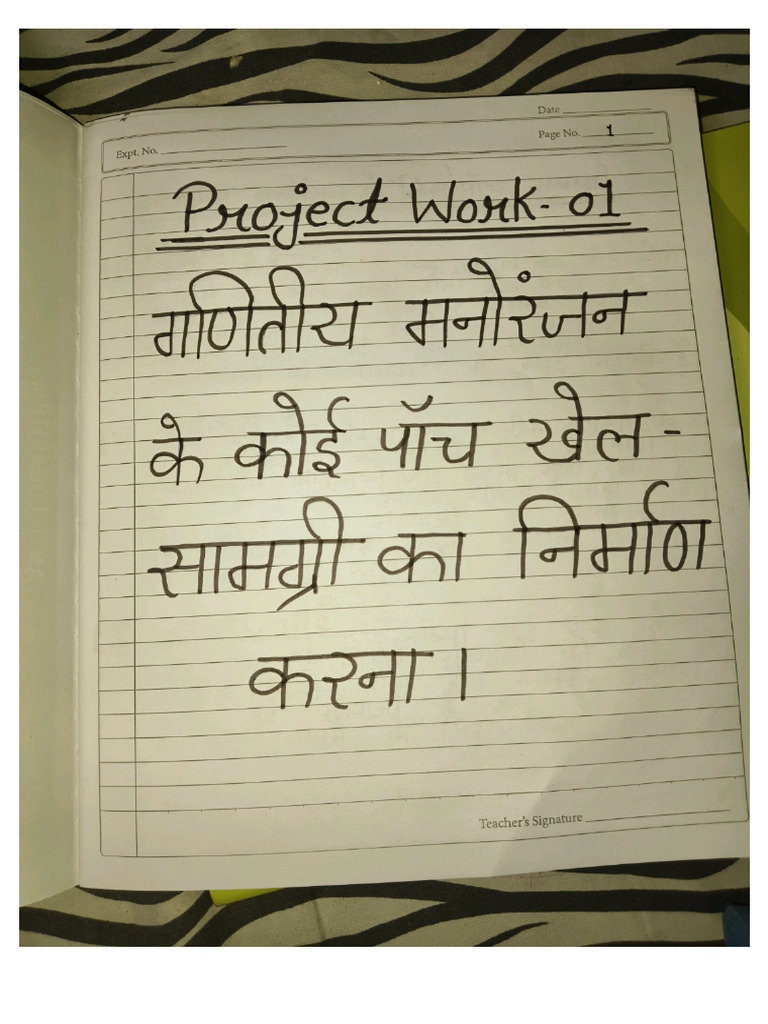 Date
Page No. 1
Expt. No.
Project Work - 01
गणितीय मनोरंजन
के कोई पाँच खेल -
सामग्री का निर्माण
करना ।
Teacher's Signature